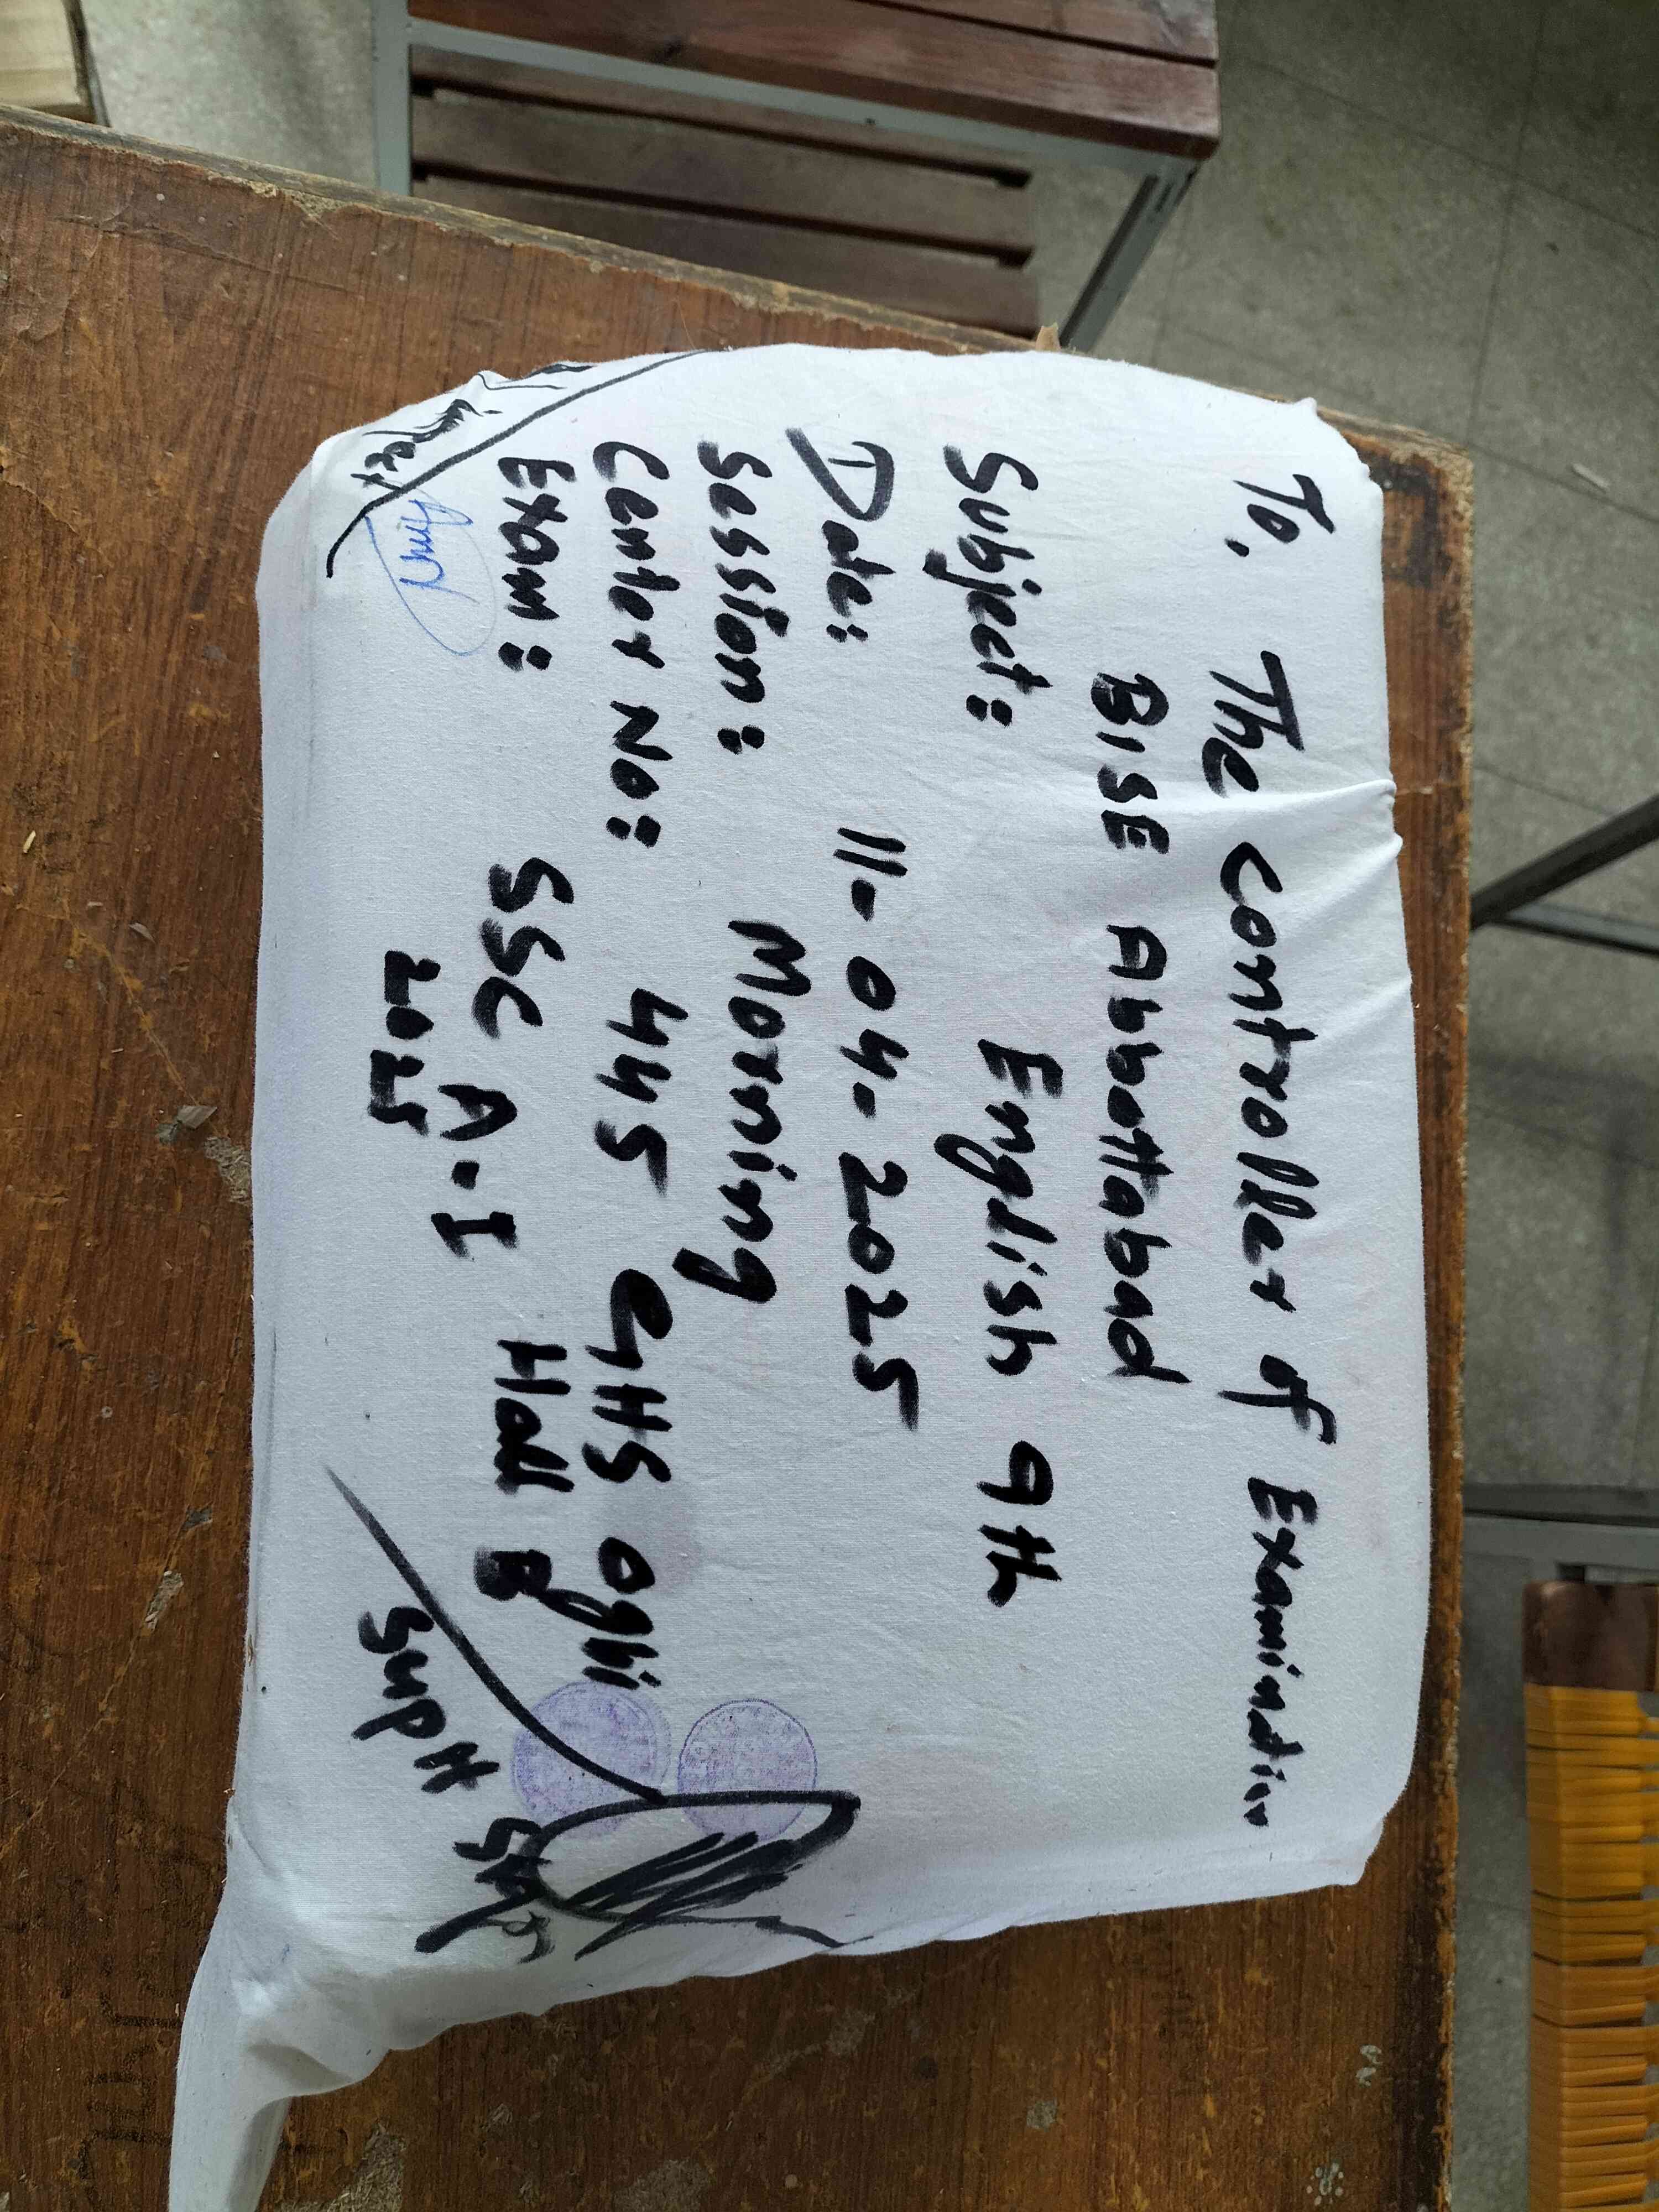 To, The Controller of Examination
BISE Abbottabad
Subject: English 9th
Date: 11-04-2025
Session: Morning
Center No: 445 GHS Oghi
Exam: SSC A-I Hall B
2025
Supdt